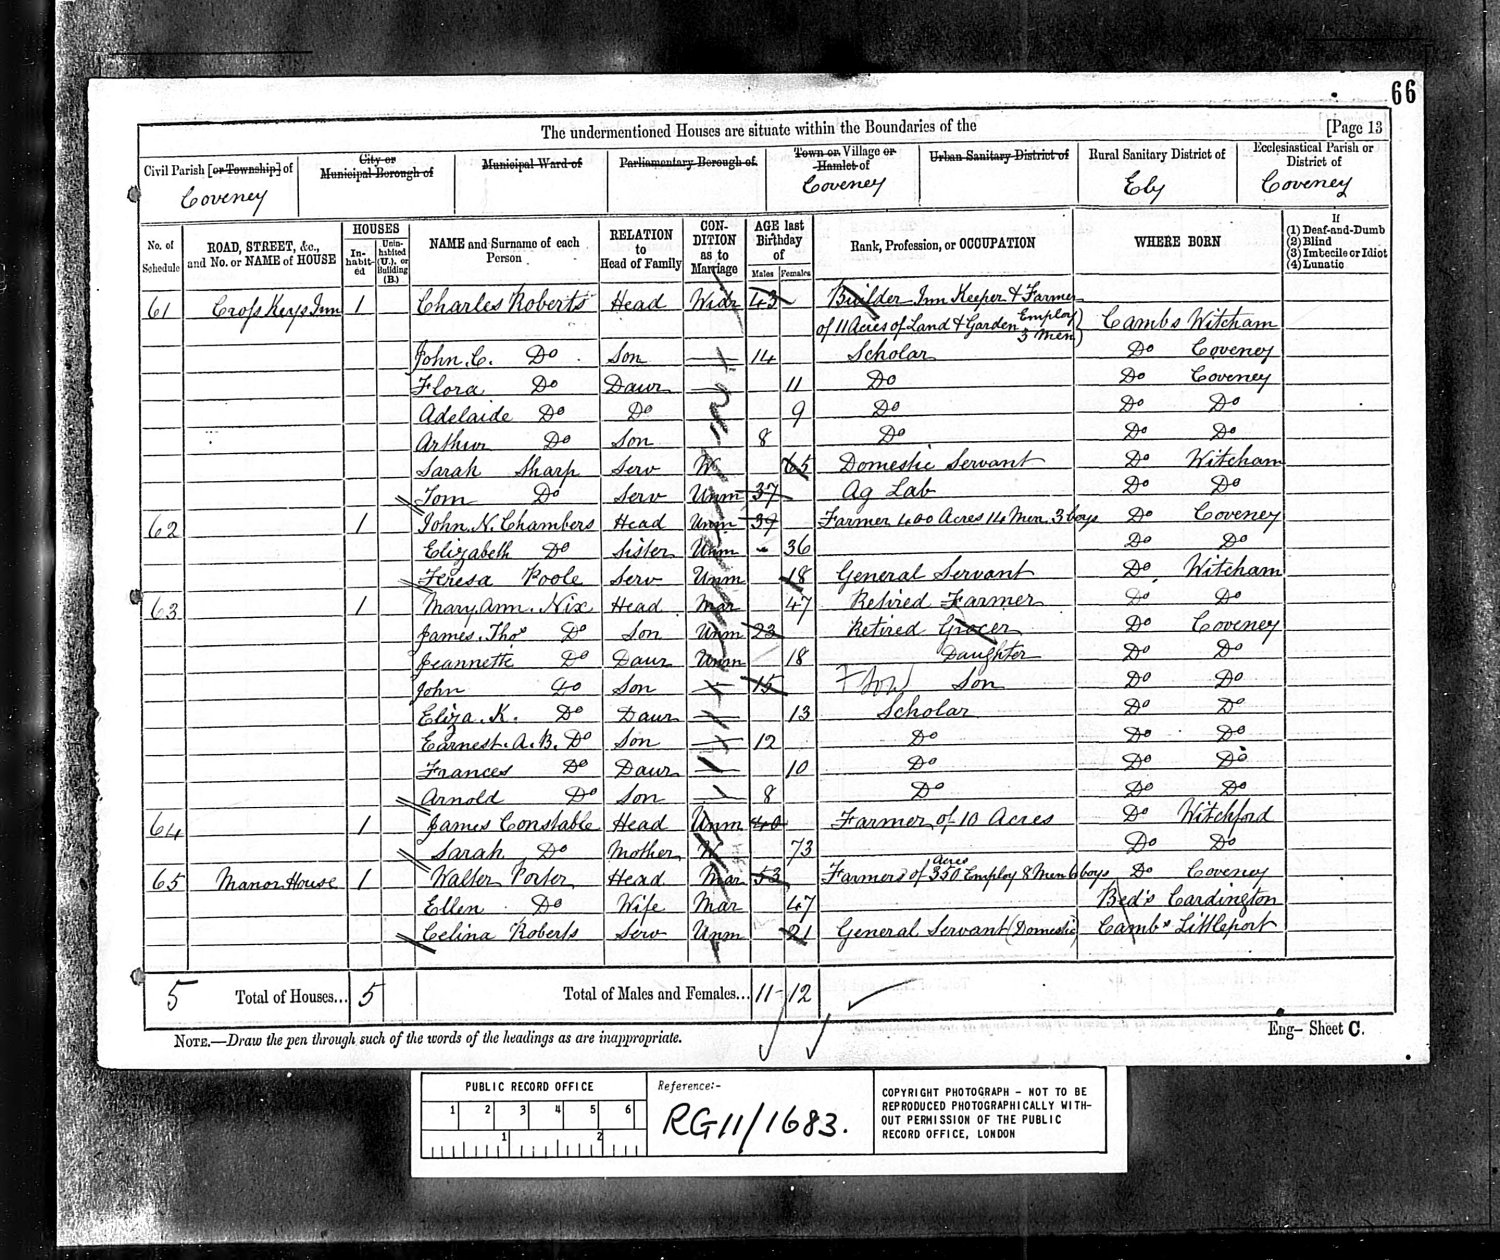 66
The undermentioned Houses are situate within the Boundaries of the [Page 13
Civil Parish [or Township] of City or Municipal Borough of Municipal Ward of Parliamentary Borough of Town or Village or Hamlet of Urban Sanitary District of Rural Sanitary District of Ecclesiastical Parish or District of
Coveney Coveney Ely Coveney
No. of Schedule ROAD, STREET, &c., and No. or NAME of HOUSE HOUSES Inhabited Uninhabited (U.), or Building (B.) NAME and Surname of each Person RELATION to Head of Family CONDITION as to Marriage AGE last Birthday of Males Females Rank, Profession, or OCCUPATION WHERE BORN If (1) Deaf-and-Dumb (2) Blind (3) Imbecile or Idiot (4) Lunatic
61 Cross Keys Inn 1 Charles Roberts Head Widr 43 Builder Inn Keeper & Farmer
of 11 Acres of Land & Garden Employ 3 Men) Cambs Witcham
John. C. Do Son 14 Scholar Do Coveney
Flora Do Daur 11 Do Do Coveney
Adelaide Do Do 9 Do Do Do
Arthur Do Son 8 Do Do Do
Sarah Sharp Serv W 65 Domestic Servant Do Witcham
Tom Do Serv Unm 37 Ag Lab Do Do
62 1 John. N. Chambers Head Unm 39 Farmer 400 Acres 14 Men 3 boys Do Coveney
Elizabeth Do Sister Unm 36 Do Do
Teresa Poole Serv Unm 18 General Servant Do Witcham
63 1 Mary Ann. Nix Head Mar 47 Retired Farmer Do Do
James. Thos Do Son Unm 23 Retired Grocer Do Coveney
Jeannette Do Daur Unm 18 Daughter Do Do
John do Son 15 Son Do Do
Eliza. K. Do Daur 13 Scholar Do Do
Earnest. A. B. Do Son 12 Do Do Do
Frances Do Daur 10 Do Do Do
Arnold Do Son 8 Do Do Do
64 1 James Constable Head Unm 40 Farmer of 10 Acres Do Witchford
Sarah Do Mother W 73 Do Do
65 Manor House 1 Walter Porter Head Mar 53 Farmers of 350 acres Employ 8 Men 6 boys Do Coveney
Ellen Do Wife Mar 47 Bed's Cardington
Celina Roberts Serv Unm 21 General Servant (Domestic) Cambs Littleport
5 Total of Houses... 5 Total of Males and Females... 11 12
NOTE.—Draw the pen through such of the words of the headings as are inappropriate.
Eng— Sheet C.
PUBLIC RECORD OFFICE
1 2 3 4 5 6
1 2
Reference:-
RG11/1683.
COPYRIGHT PHOTOGRAPH - NOT TO BE
REPRODUCED PHOTOGRAPHICALLY WITH-
OUT PERMISSION OF THE PUBLIC
RECORD OFFICE, LONDON